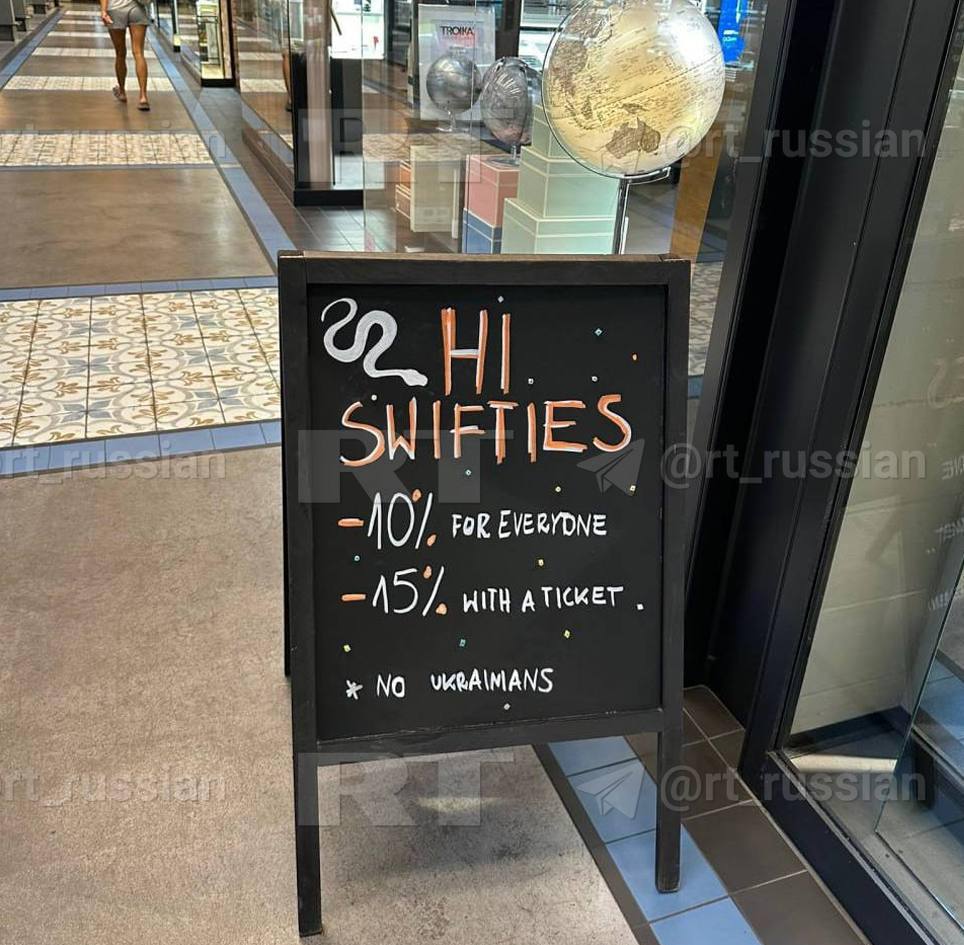 TROIKA
@rt_russian
HI
SWIFTIES
RT
@rt_russian
-10% FOR EVERYONE
-15% WITH A TICKET.
* NO UKRAIMANS
RT
@rt_russian